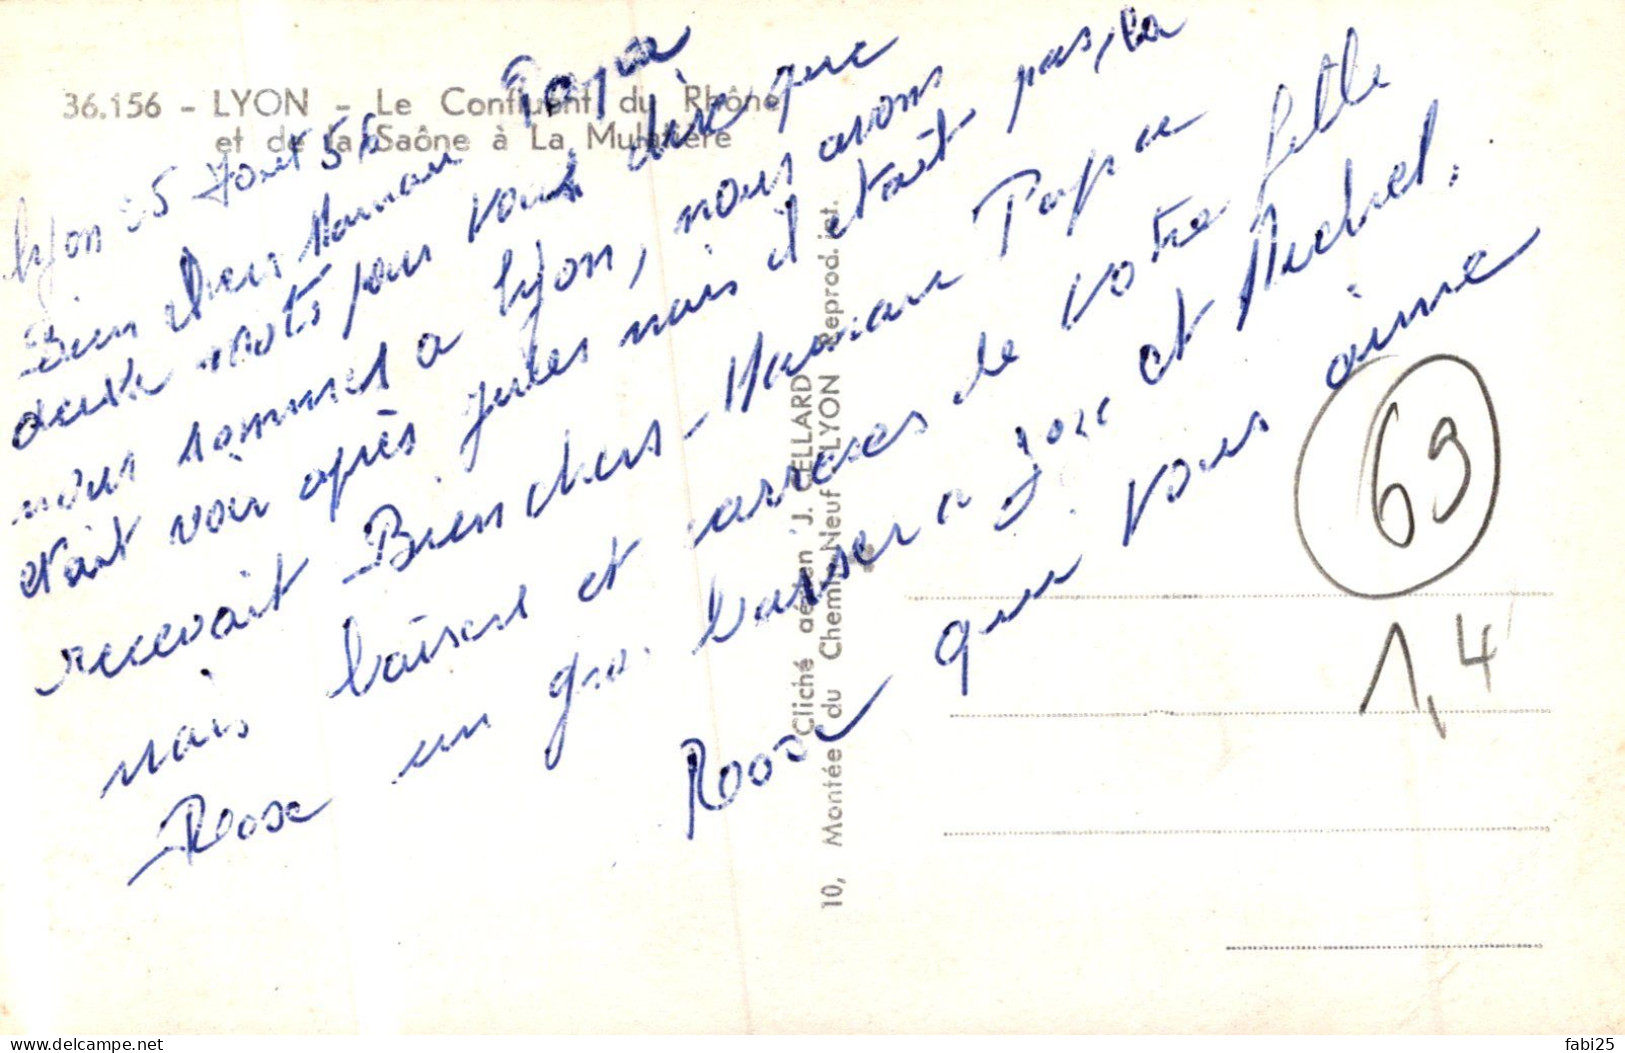 36.156 - LYON - Le Confluent du Rhône
et de la Saône à La Mulatière
Lyon 25 Aout 56
Bien chers Maman Papa
deux mots pour vous dire que
nous sommes a Lyon, nous avons
etait voir après Jules mais il etait pas la
recevait Bien chers Maman Papa
mais baisers et carreses de votre fille
Roose un gros baiser a José et Michel.
Roose que vous aime
Cliché aérien J. CELLARD
10, Montée du Chemin-Neuf - LYON Reprod. int.
69
1,4
delcampe.net
fabi25